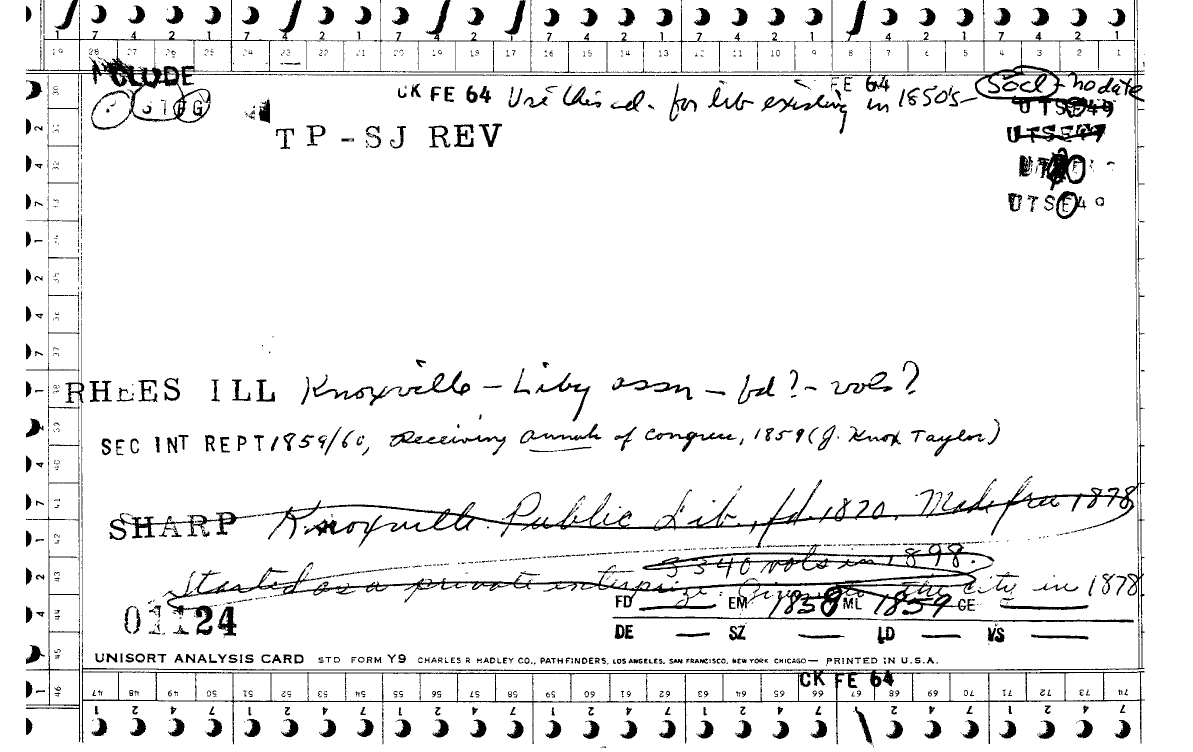 7 4 2 1 7 4 2 1 7 4 2 1 7 4 2 1 7 4 2 1 7 4 2 1 7 4 2 1
29 28 27 26 25 24 23 22 21 20 19 18 17 16 15 14 13 12 11 10 9 8 7 6 5 4 3 2 1
CLUDE
CK FE 64 Use this cd. for lib existing in 1850's— Socl - no date
FE 64
UTSE49
TP-SJ REV
UTSE49
UTSE49
RHEES ILL Knoxville - Liby assn - fd? - vols?
SEC INT REPT 1859/60, Receiving annals of Congress, 1859 (J. Knox Taylor)
SHARP Knoxville Public Lib., fd. 1870. Made free 1878
3340 vols in 1898.
Started as a private enterprize. Given to the city in 1878.
FD EM 1858 ML 1859 CE
01124
DE SZ LD VS
UNISORT ANALYSIS CARD STD FORM Y9 CHARLES R HADLEY CO., PATHFINDERS, LOS ANGELES, SAN FRANCISCO, NEW YORK CHICAGO— PRINTED IN U.S.A.
CK FE 64
47 48 49 50 51 52 53 54 55 56 57 58 59 60 61 62 63 64 65 66 67 68 69 70 71 72 73 74
1 2 4 7 1 2 4 7 1 2 4 7 1 2 4 7 1 2 4 7 1 2 4 7 1 2 4 7